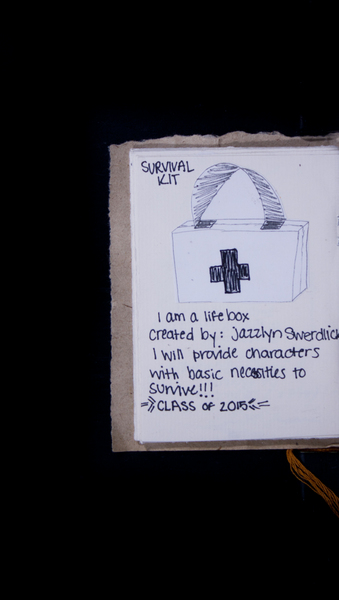 SURVIVAL
KIT
I am a life box
Created by: Jazzlyn Swerdlick
I will provide characters
with basic necessities to
survive!!!
CLASS of 2015